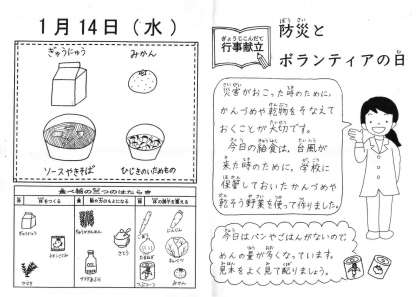 1月14日（水）
ぎゅうにゅう
みかん
ソースやきそば
ひじきのいためもの
食べ物の三つのはたらき
赤
体をつくる
黄
熱や力のもとになる
緑
体の調子を整える
ぎゅうにゅう
さとう
にんじん
キャベツ
みかん
ぎょうじこんだて
行事献立
ぼうさい
防災と
ボランティアの日
災害がおこった時のために、
かんづめや乾物をそなえて
おくことが大切です。
今日の給食は、台風が
来た時のために、学校に
保管しておいたかんづめや
乾そう野菜を使って作りました。
今日はパンやごはんがないので、
めんの量が多くなっています。
見本をよく見て配りましょう。